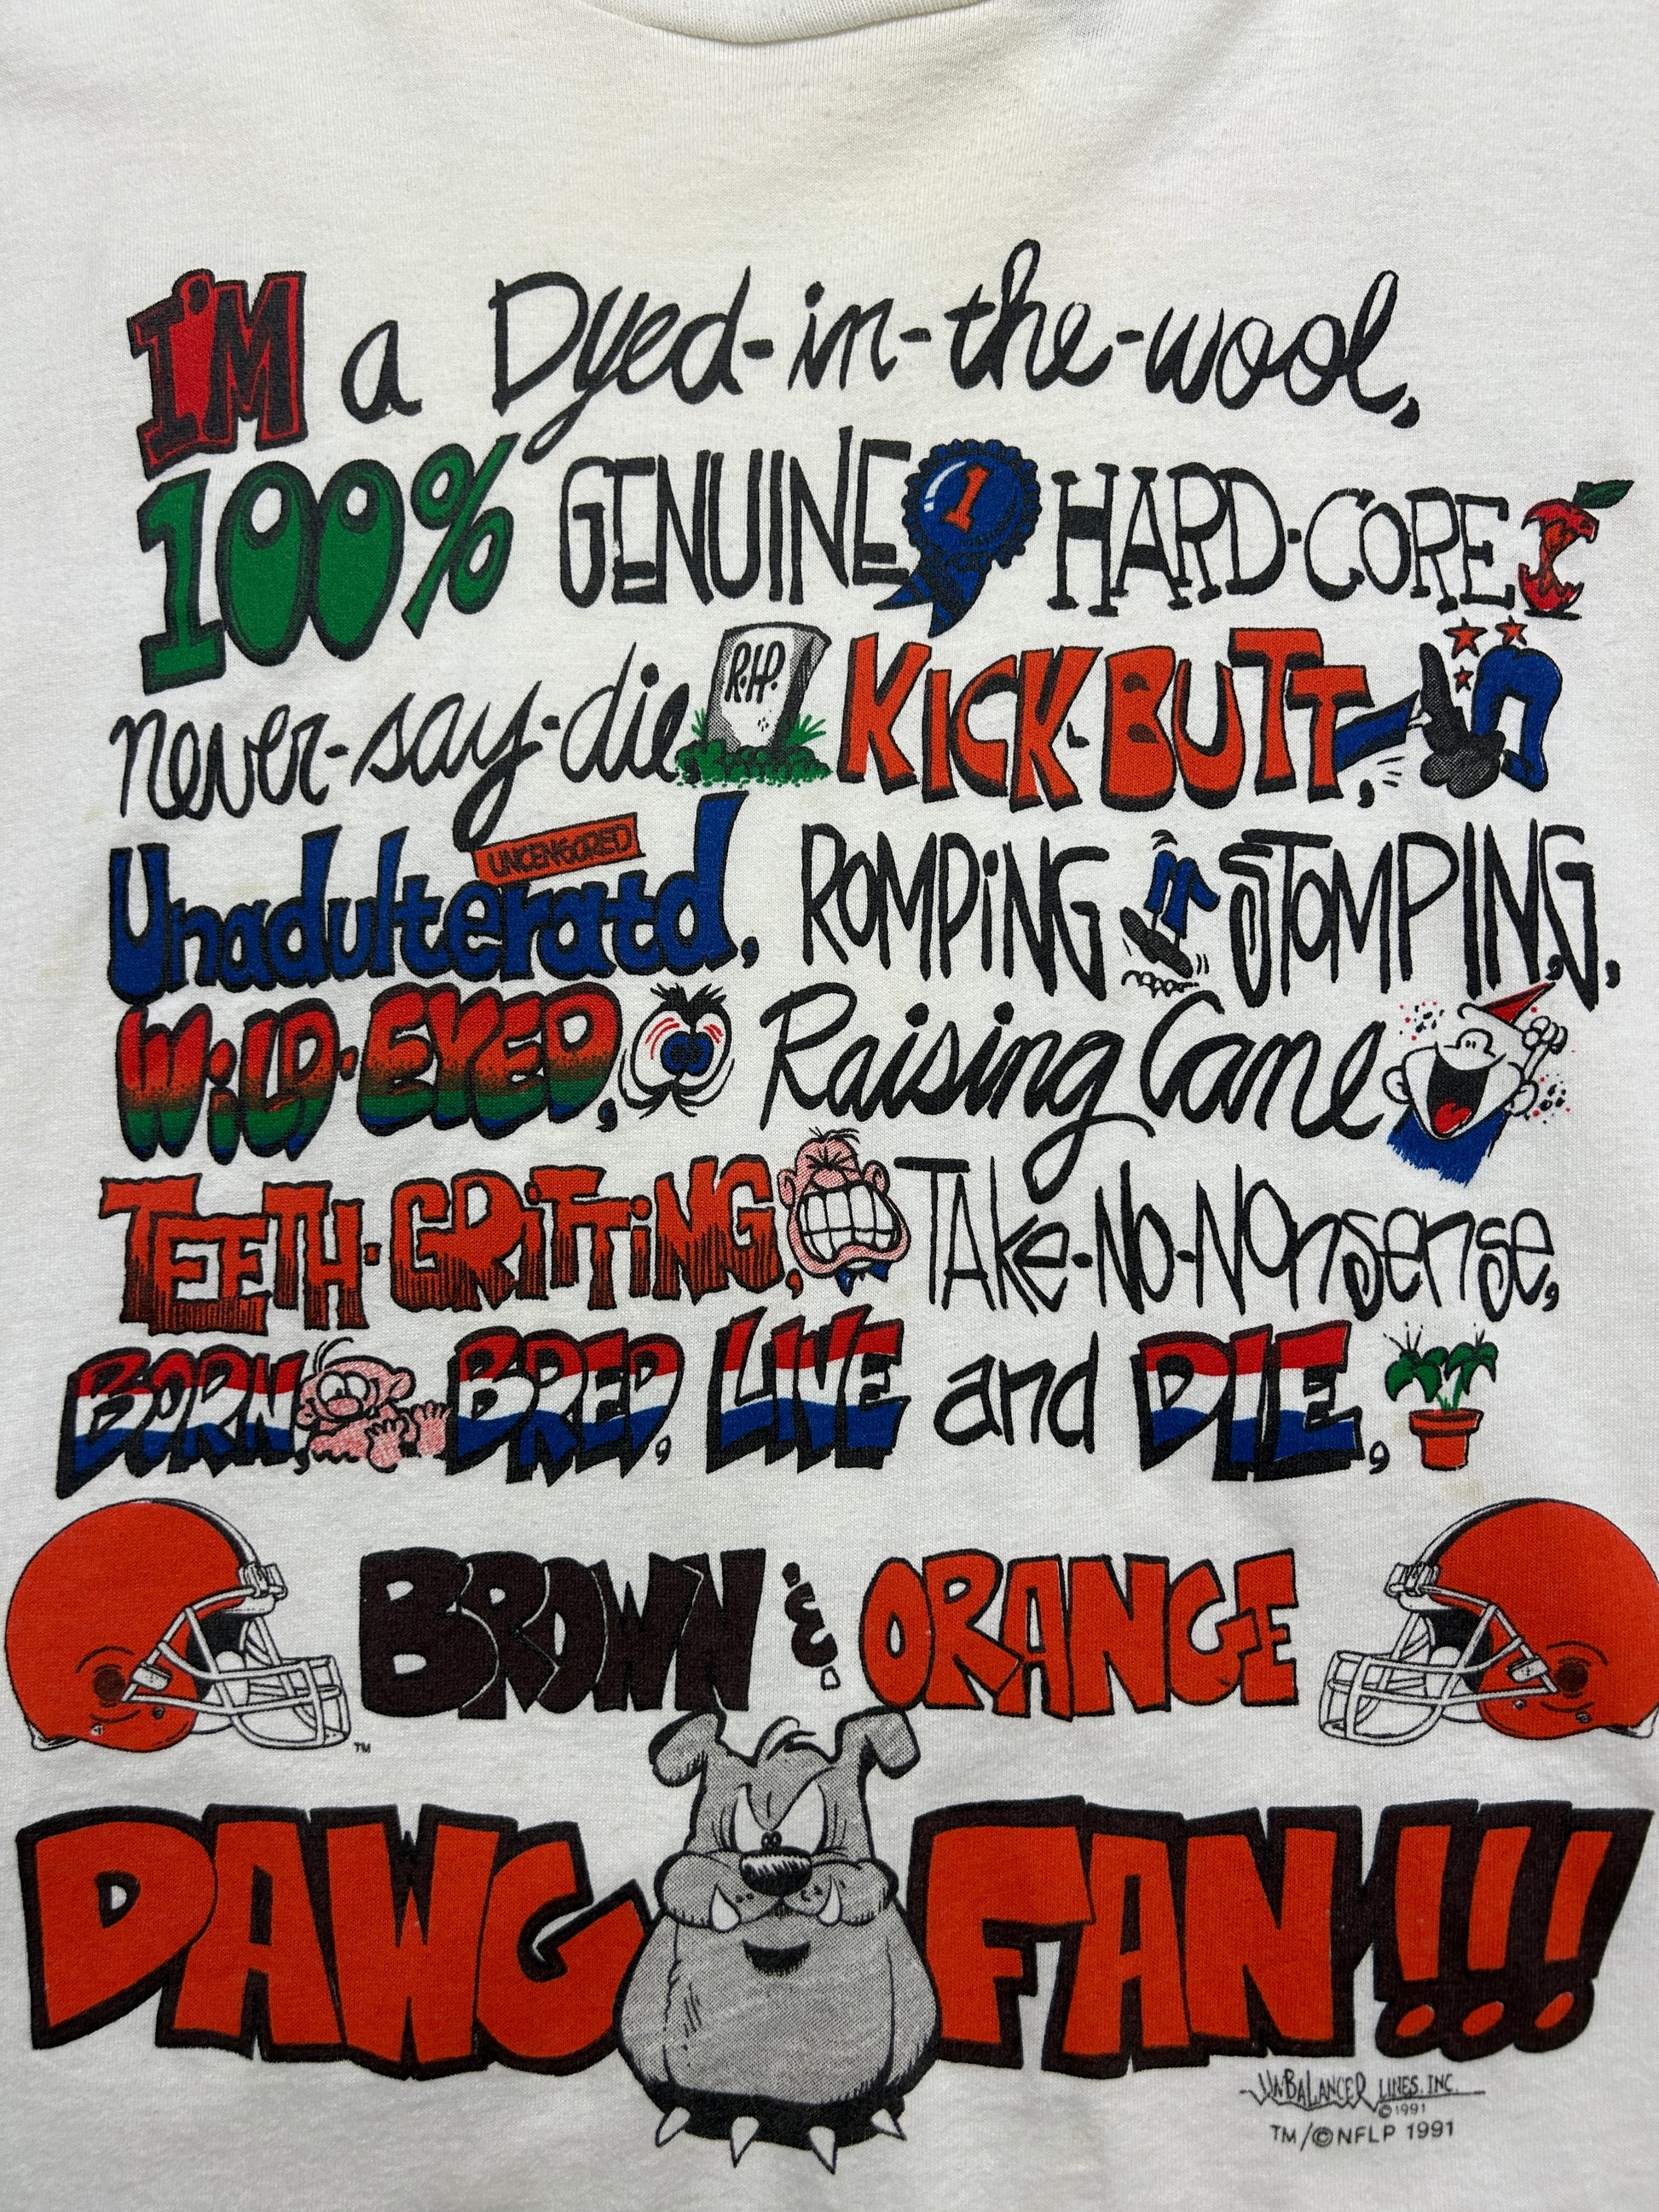 I'M a Dyed-in-the-wool,
100% GENUINE 1 HARD-CORE
never-say-die, R.I.P. KICK-BUTT,
UNCENSORED
Unadulteratd, ROMPiNG STOMPING,
WiLD-EYED, Raising Cane
TEETH-GRiTTiNG, TAke-No-NOnsense,
BORN, BRED, LIVE and DIE,
BROWN & ORANGE
TM
DAWG FAN!!!
UNBALANCER LINES, INC.
©1991
TM/©NFLP 1991